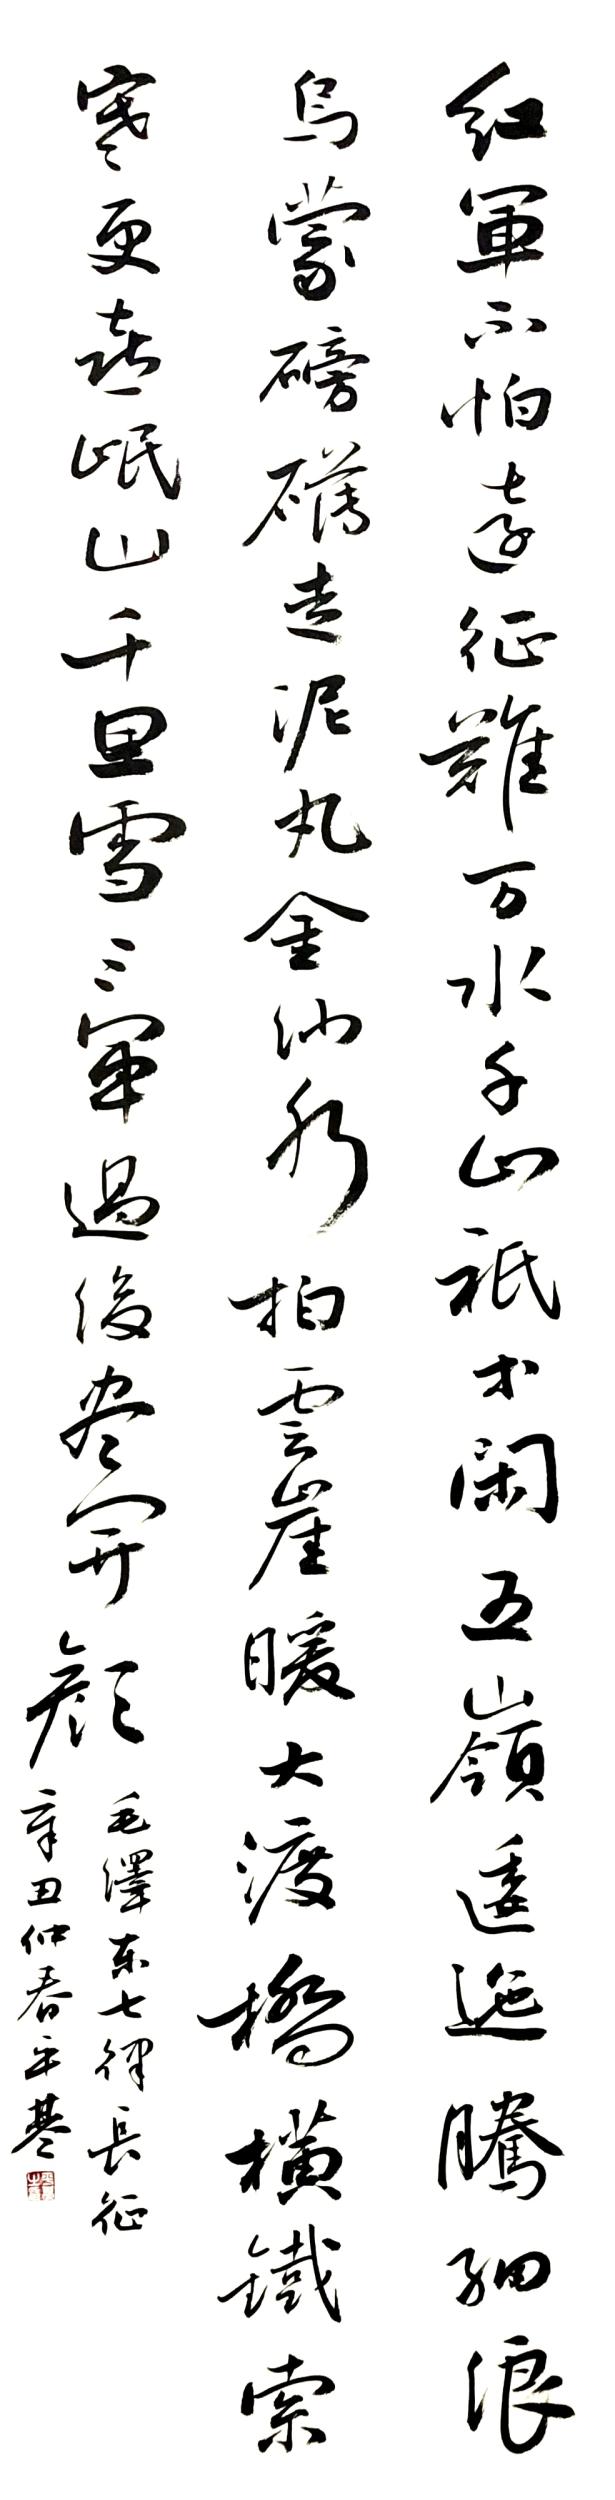 紅軍不怕遠征難万水千山祇等閑五嶺逶迤騰細浪
烏蒙磅礴走泥丸金沙水拍雲崖暖大渡橋橫鐵索
寒更喜岷山千里雪三軍過後盡開顏
毛澤東七律長征
辛丑仲春